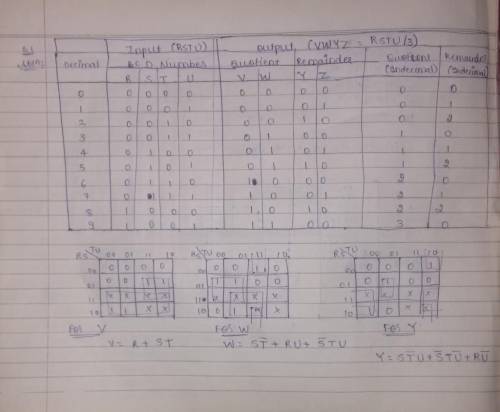 Input (RSTU) Output (VWYZ = RSTU/3)
Decimal BCD Number Quotient Remainder Quotient (Indecimal) Remainder (Indecimal)
R S T U V W Y Z
0 0 0 0 0 0 0 0 0 0 0
1 0 0 0 1 0 0 0 1 0 1
2 0 0 1 0 0 0 1 0 0 2
3 0 0 1 1 0 1 0 0 1 0
4 0 1 0 0 0 1 0 1 1 1
5 0 1 0 1 0 1 1 0 1 2
6 0 1 1 0 1 0 0 0 2 0
7 0 1 1 1 1 0 0 1 2 1
8 1 0 0 0 1 0 1 0 2 2
9 1 0 0 1 1 1 0 0 3 0
RS TU 00 01 11 10 RS TU 00 01 11 10 RS TU 00 01 11 10
00 0 0 0 0 00 0 0 1 0 00 0 0 0 1
01 0 0 1 1 01 1 1 0 0 01 0 1 0 0
11 x x x x 11 x x x x 11 x x x x
10 1 1 x x 10 0 1 x x 10 1 0 x x
For V For W For Y
V = R + ST W = ST̅ + RU + S̅TU
Y = ST̅U + S̅TU̅ + RU̅